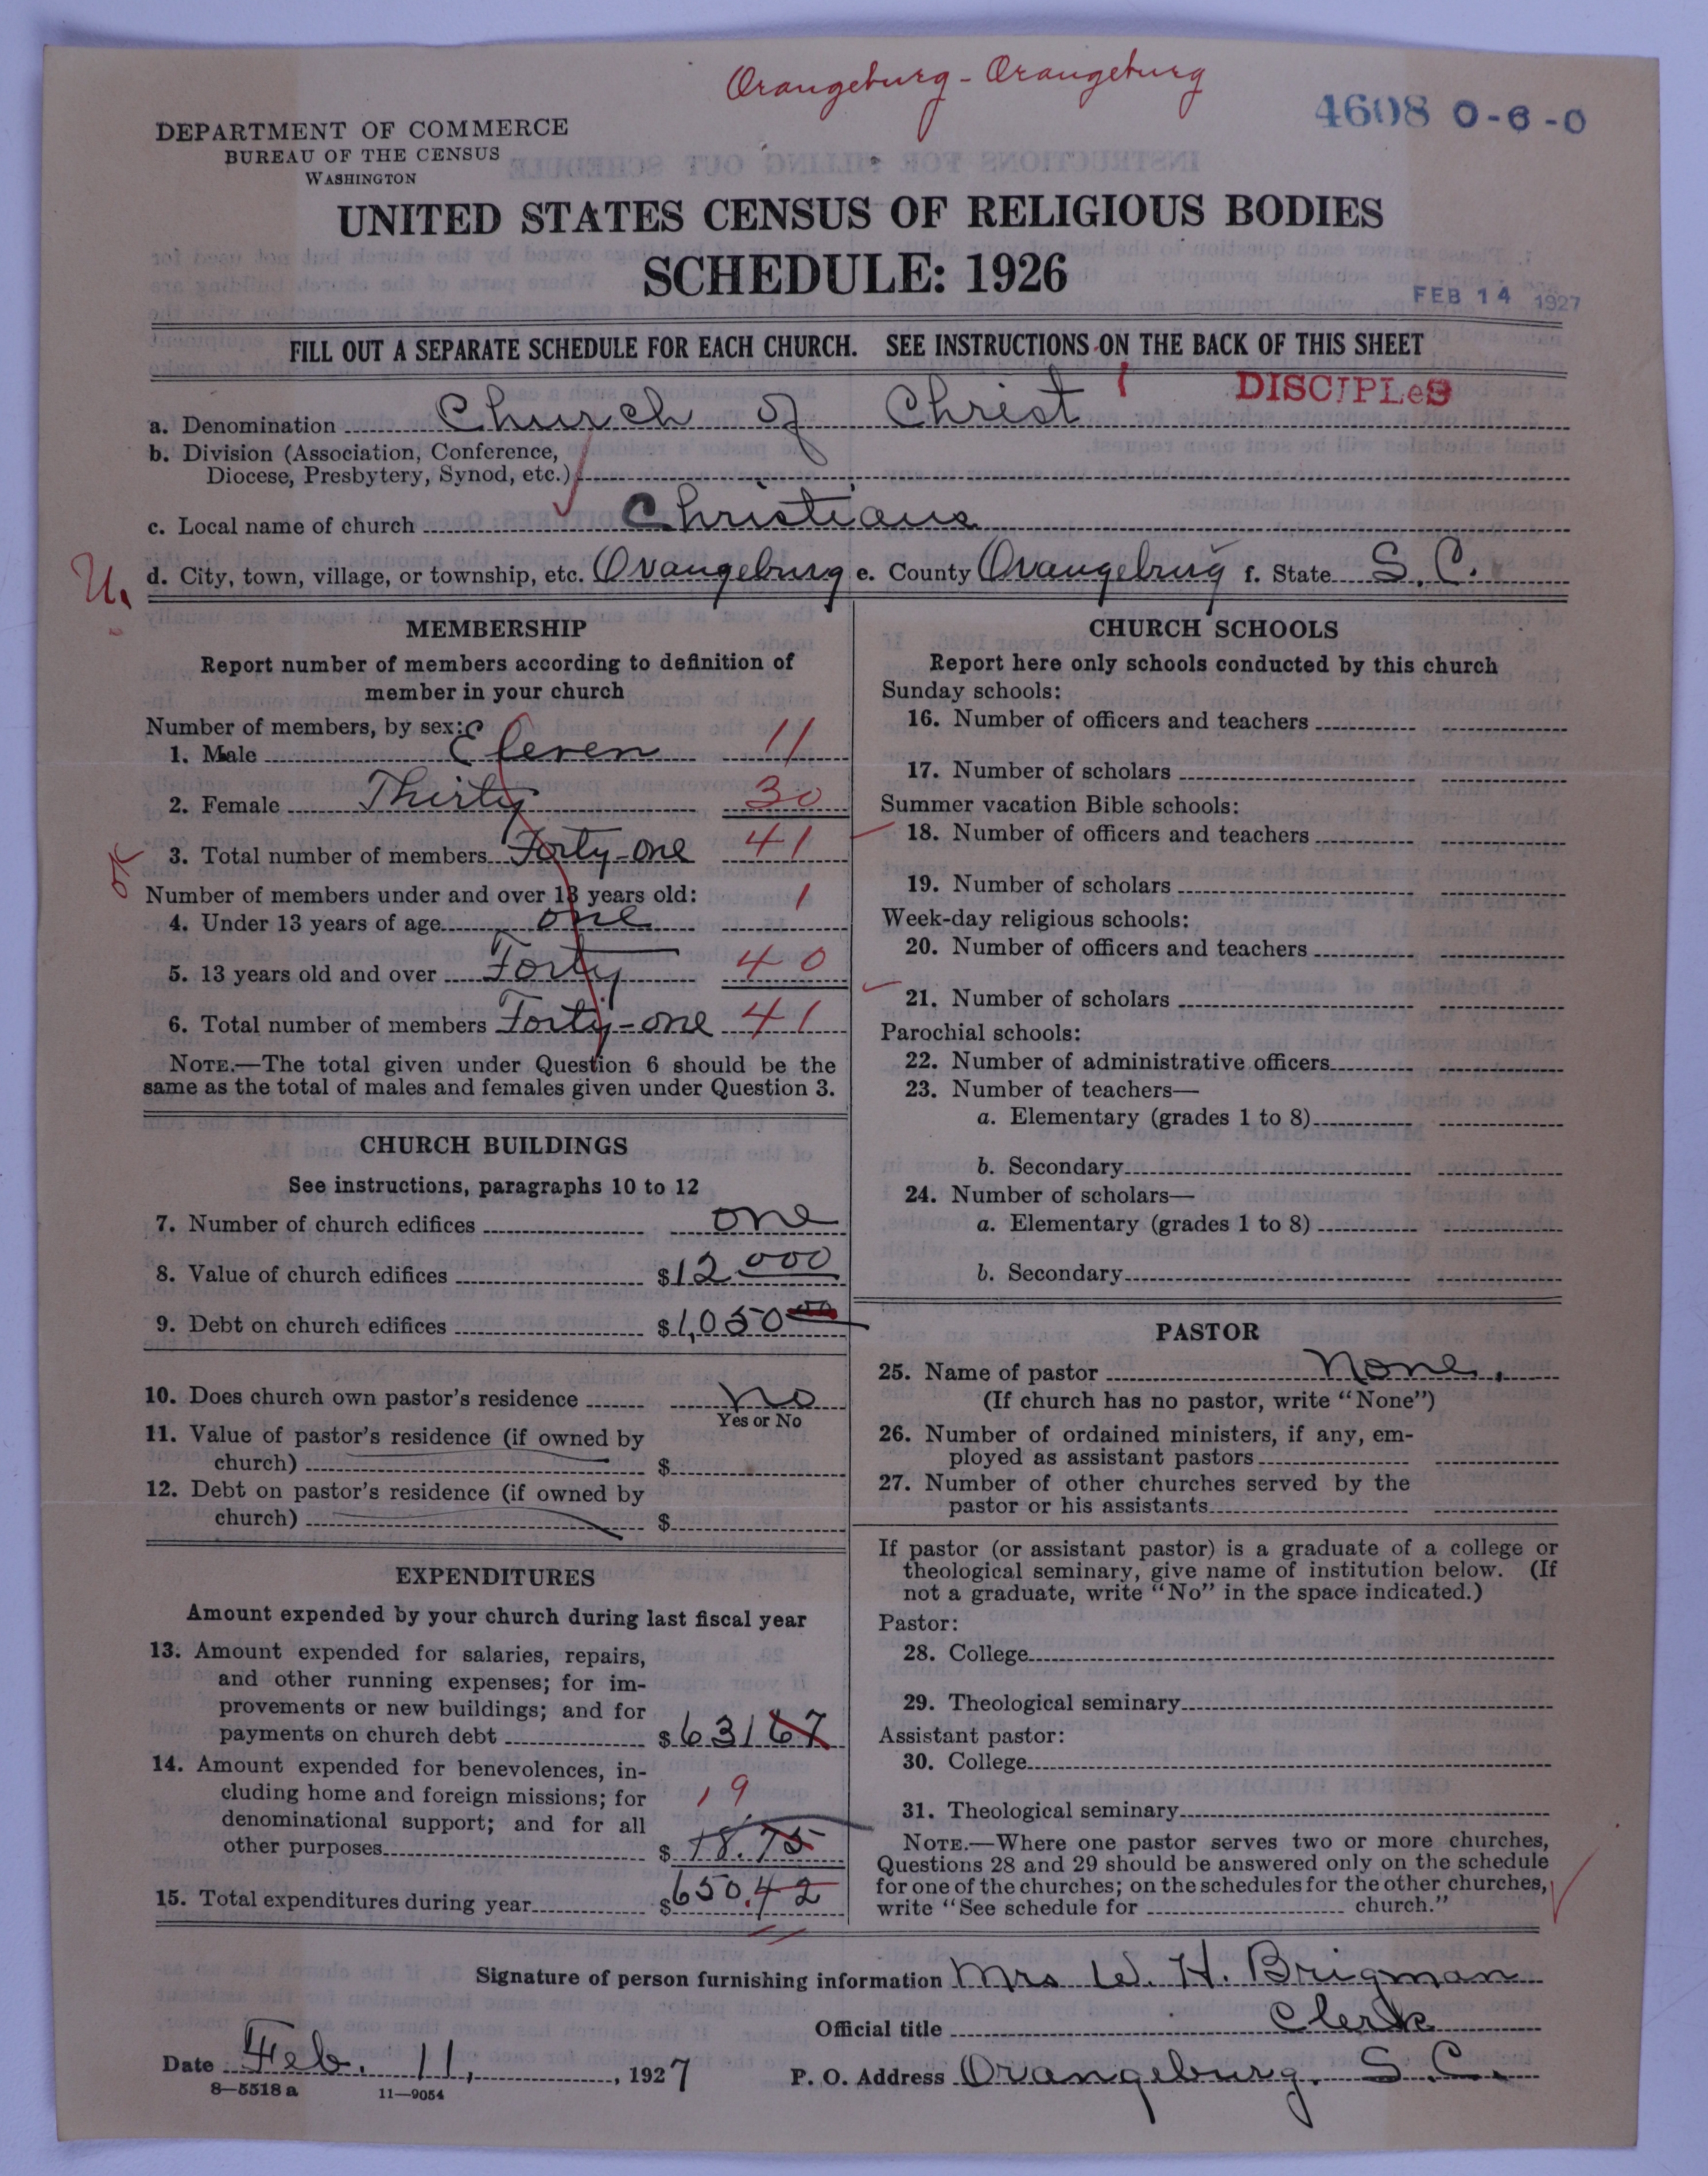 Orangeburg - Orangeburg
4608 0-6-0
DEPARTMENT OF COMMERCE
BUREAU OF THE CENSUS
WASHINGTON
UNITED STATES CENSUS OF RELIGIOUS BODIES
SCHEDULE: 1926
FEB 14 1927
FILL OUT A SEPARATE SCHEDULE FOR EACH CHURCH. SEE INSTRUCTIONS ON THE BACK OF THIS SHEET
DISCIPLeS
a. Denomination Church of Christ
b. Division (Association, Conference,
Diocese, Presbytery, Synod, etc.)
c. Local name of church Christians
U. d. City, town, village, or township, etc. Orangeburg e. County Orangeburg f. State S. C.
MEMBERSHIP
Report number of members according to definition of
member in your church
Number of members, by sex:
1. Male Eleven 11
2. Female Thirty 30
OK 3. Total number of members Forty-one 41
Number of members under and over 13 years old: 1
4. Under 13 years of age one
5. 13 years old and over Forty 40
6. Total number of members Forty-one 41
NOTE.—The total given under Question 6 should be the
same as the total of males and females given under Question 3.
CHURCH BUILDINGS
See instructions, paragraphs 10 to 12
7. Number of church edifices one
8. Value of church edifices $12 000
9. Debt on church edifices $1,050 00
10. Does church own pastor's residence no
Yes or No
11. Value of pastor's residence (if owned by
church) $
12. Debt on pastor's residence (if owned by
church) $
EXPENDITURES
Amount expended by your church during last fiscal year
13. Amount expended for salaries, repairs,
and other running expenses; for im-
provements or new buildings; and for
payments on church debt $631 67
14. Amount expended for benevolences, in-
cluding home and foreign missions; for 19
denominational support; and for all
other purposes $18.75
15. Total expenditures during year $650.42
CHURCH SCHOOLS
Report here only schools conducted by this church
Sunday schools:
16. Number of officers and teachers
17. Number of scholars
Summer vacation Bible schools:
18. Number of officers and teachers
19. Number of scholars
Week-day religious schools:
20. Number of officers and teachers
21. Number of scholars
Parochial schools:
22. Number of administrative officers
23. Number of teachers—
a. Elementary (grades 1 to 8)
b. Secondary
24. Number of scholars—
a. Elementary (grades 1 to 8)
b. Secondary
PASTOR
25. Name of pastor None.
(If church has no pastor, write "None")
26. Number of ordained ministers, if any, em-
ployed as assistant pastors
27. Number of other churches served by the
pastor or his assistants
If pastor (or assistant pastor) is a graduate of a college or
theological seminary, give name of institution below. (If
not a graduate, write "No" in the space indicated.)
Pastor:
28. College
29. Theological seminary
Assistant pastor:
30. College
31. Theological seminary
NOTE.—Where one pastor serves two or more churches,
Questions 28 and 29 should be answered only on the schedule
for one of the churches; on the schedules for the other churches,
write "See schedule for church."
Signature of person furnishing information Mrs W. H. Brigman
Official title Clerk
Date Feb. 11, 1927 P. O. Address Orangeburg. S.C.
8—5518 a 11—9054